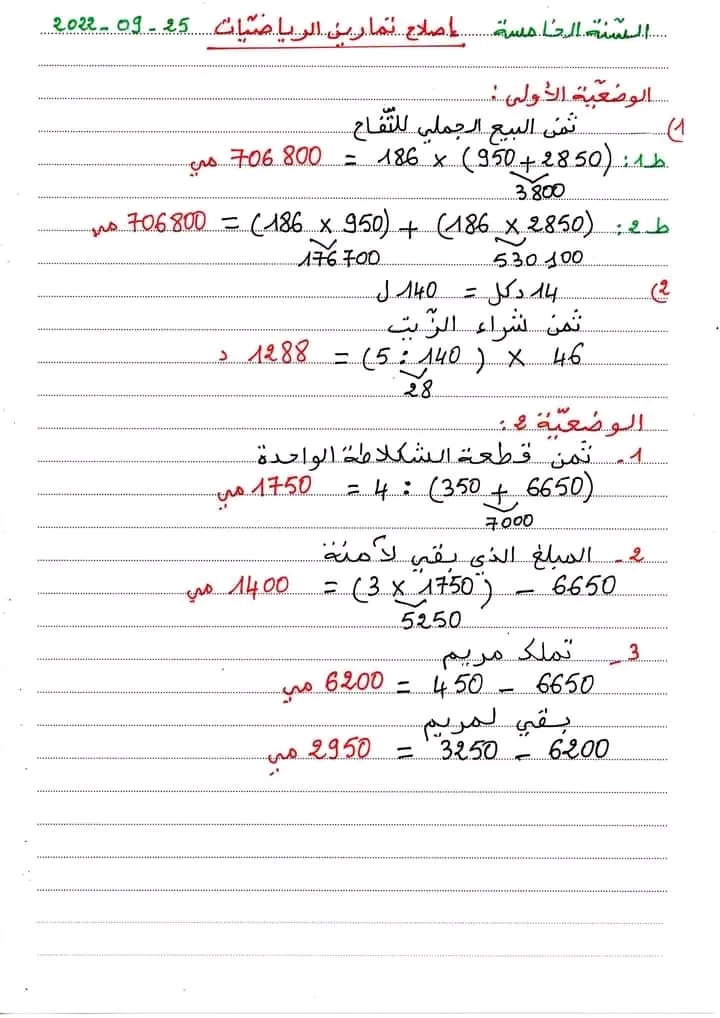 السّنة الخامسة إصلاح تمارين الرياضيّات 25 - 09 - 2022
الوضعيّة الأولى :
1) ثمن البيع الجملي للتّفاح
ط1 : (2850 + 950) × 186 = 706 800 مي
3800
ط2 : (2850 × 186) + (950 × 186) = 706800 مي
530 100 176 700
2) 14 دكل = 140 ل
ثمن شراء الزّيت
46 × (140 : 5) = 1288 د
28
الوضعيّة 2 :
1 - ثمن قطعة الشكلاطة الواحدة
(6650 + 350) : 4 = 1750 مي
7000
2 - المبلغ الذي بقي لآمنة
6650 - (1750 × 3) = 1400 مي
5250
3 - تملك مريم
6650 - 450 = 6200 مي
بقي لمريم
6200 - 3250 = 2950 مي